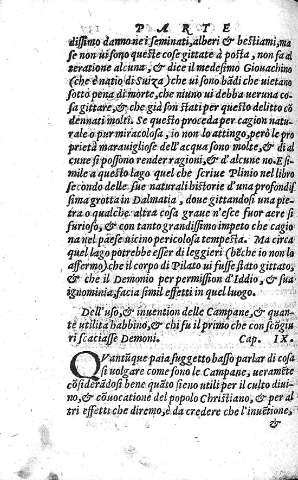 PARTE
dissimo danno ne i seminati, alberi & bestiami, ma
se non vi sono queste cose gittate à posta, non fa al
teratione alcuna, & dice il medesimo Giouachino
(che è natio di Suiza) che vi sono bādi che vietano
sotto pena di morte, che niuno vi debba veruna co-
sa gittare, & che già son stati per questo delitto cō
dennati molti. Se questo proceda per cagion natu-
rale o pur miracolosa, io non lo attingo, però le pro
prietà marauigliose dell'acqua sono molte, & di al
cune si possono render ragioni, & d'alcune no. E si-
mile a questo lago quel che scriue Plinio nel libro
secondo delle sue naturali historie d'vna profondis
sima grotta in Dalmatia, doue gittandosi vna pie-
tra o qualche altra cosa graue n'esce fuor aere si
furioso, & con tanto grandissimo impeto che cagio
na nel paese vicino pericolosa tempesta. Ma circa
quel lago potrebbe esser di leggieri (bēche io non lo
affermo) che il corpo di Pilato vi fusse stato gittato,
& che il Demonio per permission d'Iddio, & sua
ignominia, facia simil effetti in quel luogo.
Dell'uso, & inuention delle Campane, & quan-
te utilità habbino, & chi fu il primo che con scōgiu
ri scaciasse Demoni. Cap. IX.
QVantūque paia suggetto basso parlar di cosa
si volgare come sono le Campane, veramēte
cōsiderādosi bene quāto sieno utili per il culto diui
no, & cōuocatione del popolo Christiano, & per al
tri effetti che diremo, è da credere che l'inuētione,
&